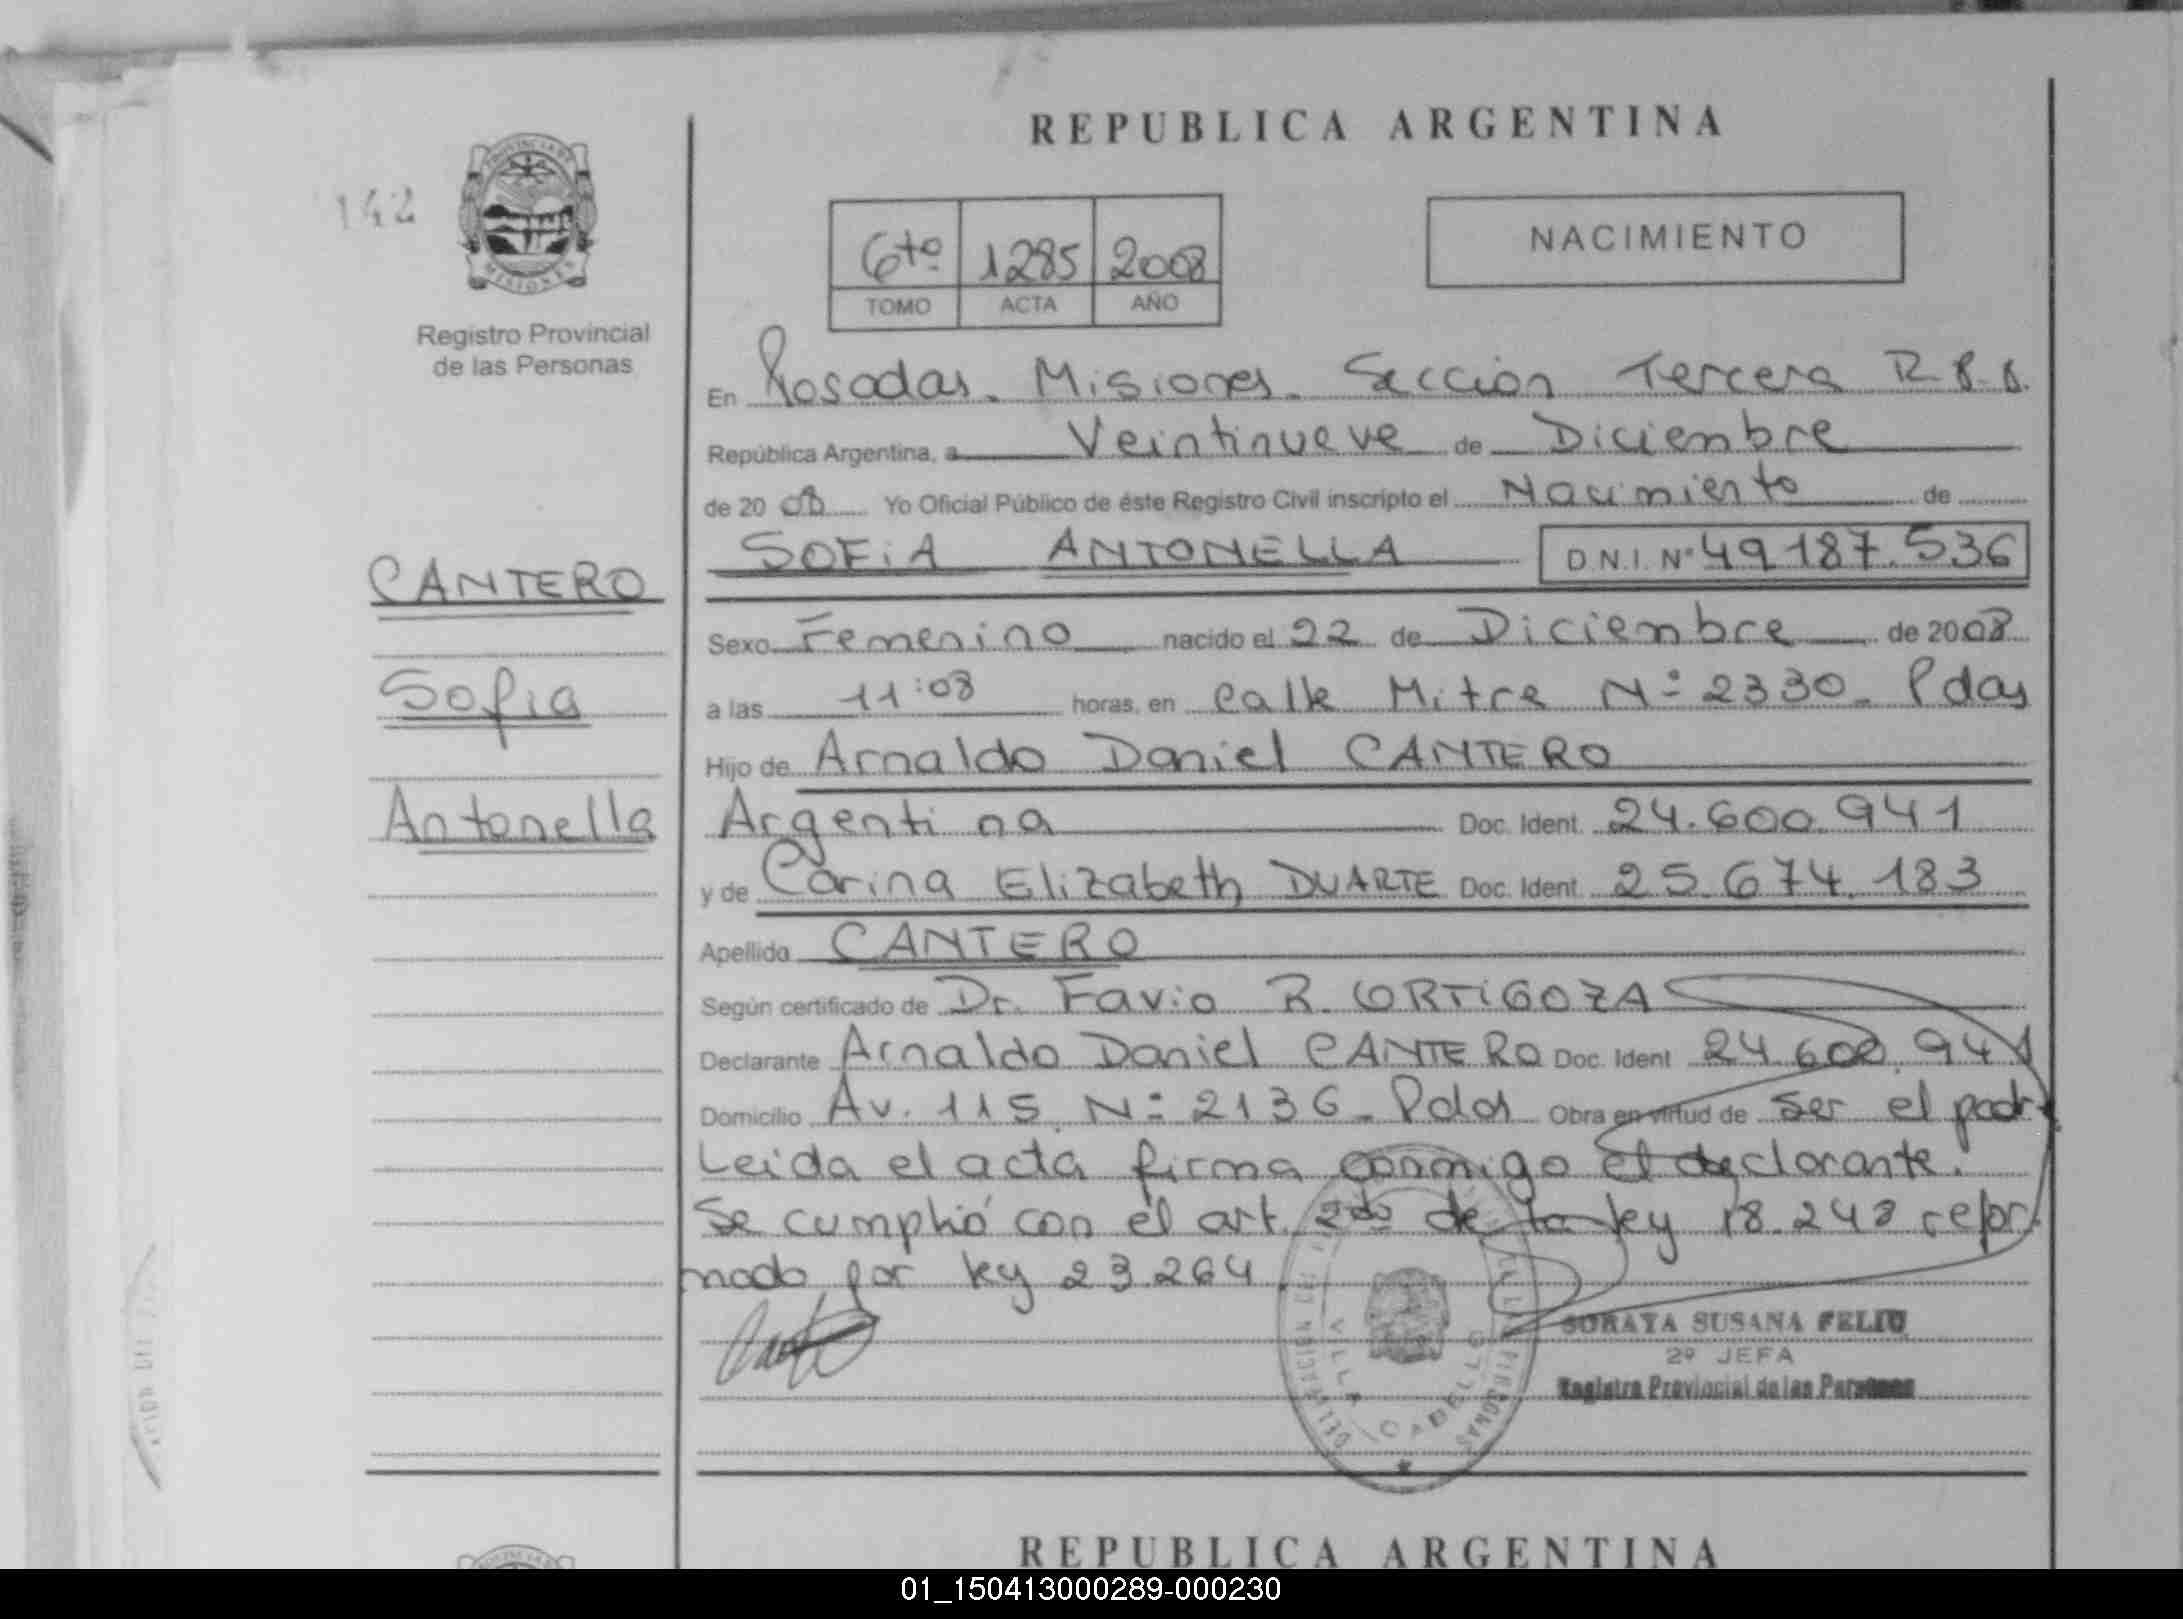 REPUBLICA ARGENTINA
142
PROVINCIA DE
MISIONES
Registro Provincial
de las Personas
6to 1285 2008
TOMO ACTA AÑO
NACIMIENTO
En Posadas. Misiones. Sección Tercera R.P.P.
República Argentina, a Veintinueve de Diciembre
de 20 08 Yo Oficial Público de éste Registro Civil inscripto el Nacimiento de
SOFiA ANTONELLA D.N.I. Nº 49187.536
CANTERO
Sofia
Antonella
Sexo Femenino nacido el 22 de Diciembre de 2008
a las 11:08 horas, en Calle Mitre Nº 2330. Pdas
Hijo de Arnaldo Daniel CANTERO
Argentina Doc. Ident. 24.600.941
y de Carina Elizabeth DUARTE Doc. Ident. 25.674.183
Apellido CANTERO
Según certificado de Dr. Favio R. ORTiGOZA
Declarante Arnaldo Daniel CANTERO Doc. Ident 24.600.941
Domicilio Av. 115 Nº 2136. Pdas Obra en virtud de ser el padre
Leida el acta firma conmigo el declarante.
Se cumplió con el art. 2do de la ley 18.248 refor
mado por ley 23.264.
VILLA CABELLO
SORAYA SUSANA FELIU
2º JEFA
Registro Provincial de las Personas
REPUBLICA ARGENTINA
01_150413000289-000230